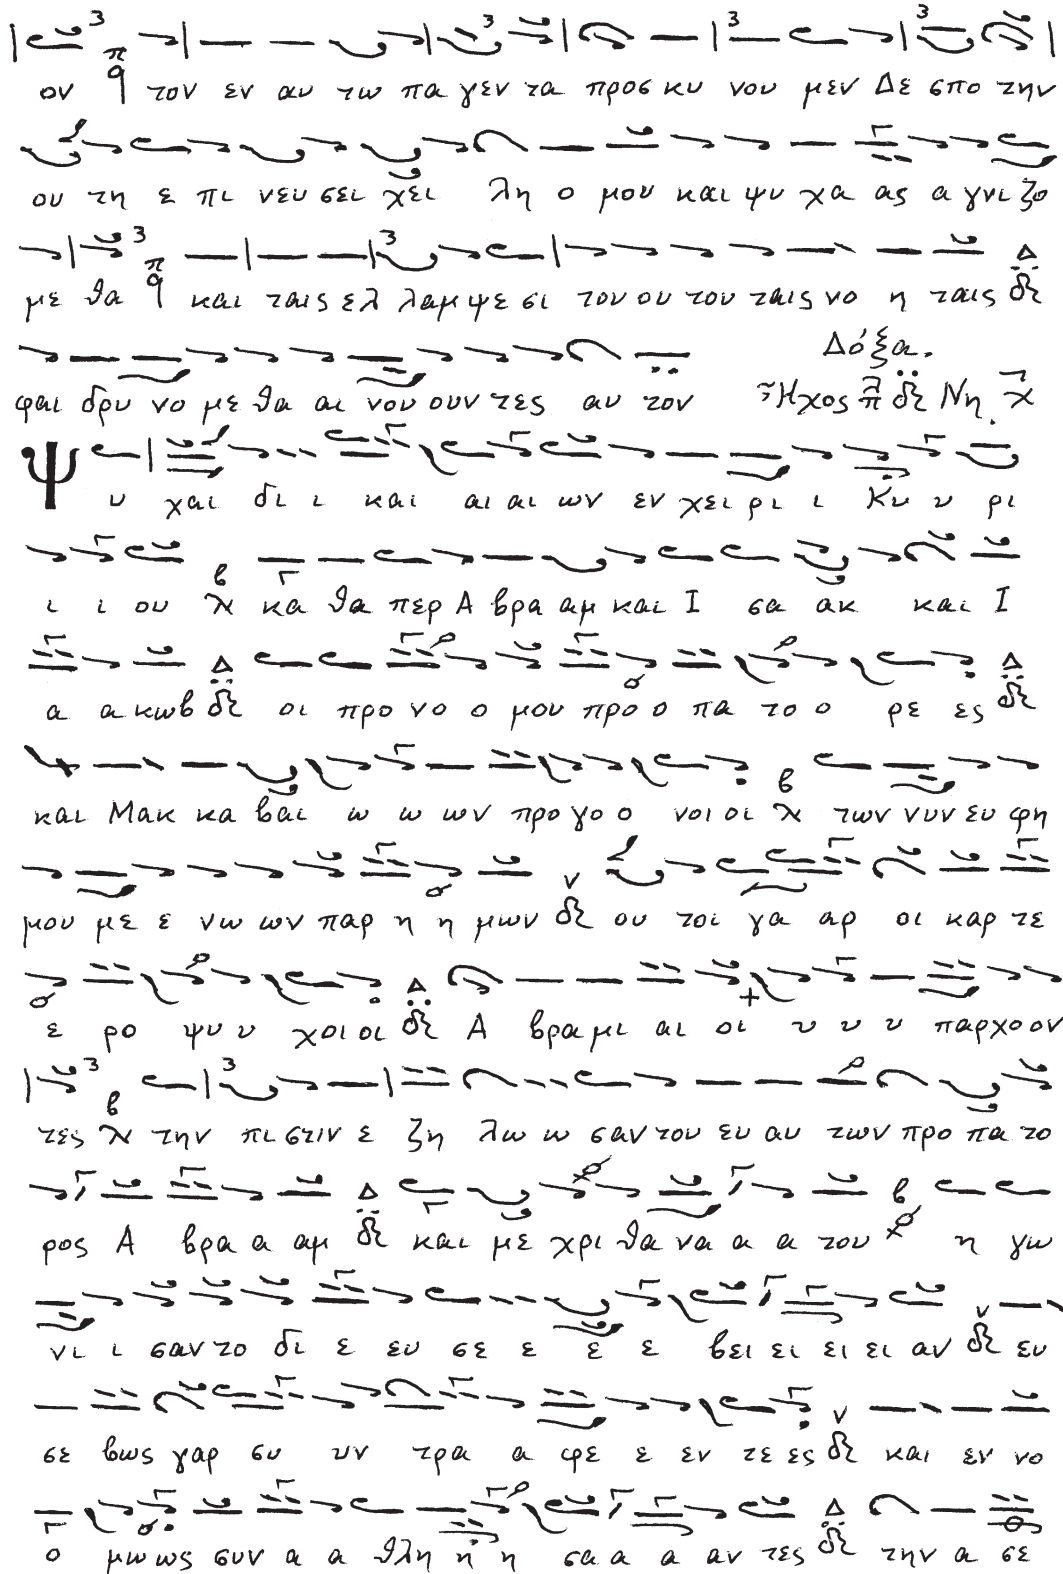 ον π q τον εν αυ τω πα γεν τα προς κυ νου μεν Δε σπο την
ου τη ε πι νευ σει χει λη ο μου και ψυ χα ας α γνι ζο
με θα π q και ταις ελ λαμ ψε σι τον ου του ταις νο η ταις
φαι δρυ νο με θα αι νου ουν τες αυ τον
Δόξα.
Ἦχος Νη
Ψ υ χαι δι ι και αι αι ων εν χει ρι ι Κυ υ ρι
ι ι ου κα θα περ Α βρα αμ και Ι σα ακ και Ι
α α κωβ οι προ νο ο μου προ ο πα το ο ρε ες
και Μακ κα βαι ω ω ων προ γο ο νοι οι των νυν ευ φη
μου με ε νω ων παρ η η μων ου τοι γα αρ οι καρ τε
ε ρο ψυ υ χοι οι Α βρα μι αι οι υ υ υ παρχο ον
τες την πι στιν ε ζη λω ω σαν του ευ αυ των προ πα το
ρος Α βρα α αμ και με χρι θα να α α του η γω
νι ι σαν το δι ε ευ σε ε ε ε βει ει ει ει αν ευ
σε βως γαρ συ υν τρα α φε ε εν τε ες και εν νο
ο μω ως συν α α θλη η η σα α α αν τες την α σε